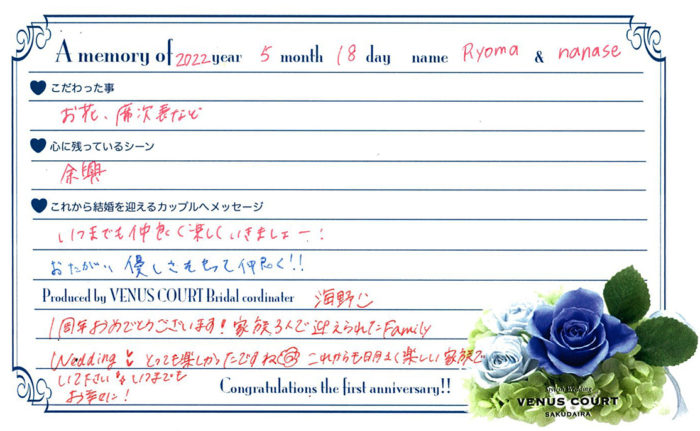 A memory of 2022 year 5 month 18 day name Ryoma & nanase
こだわった事
お花、席次表など
心に残っているシーン
余興
これから結婚を迎えるカップルへメッセージ
いつまでも仲良く楽しくいきましょー!
おたがい優しさもって仲良く!!
Produced by VENUS COURT Bridal cordinater 海野
1周年おめでとうございます!家族3人で迎えられたFamily
Wedding とっても楽しかったですね これからも明るく楽しい家族で
いて下さい いつまでも
お幸せに!
Congratulations the first anniversary!!
VENUS COURT
SAKUDAIRA